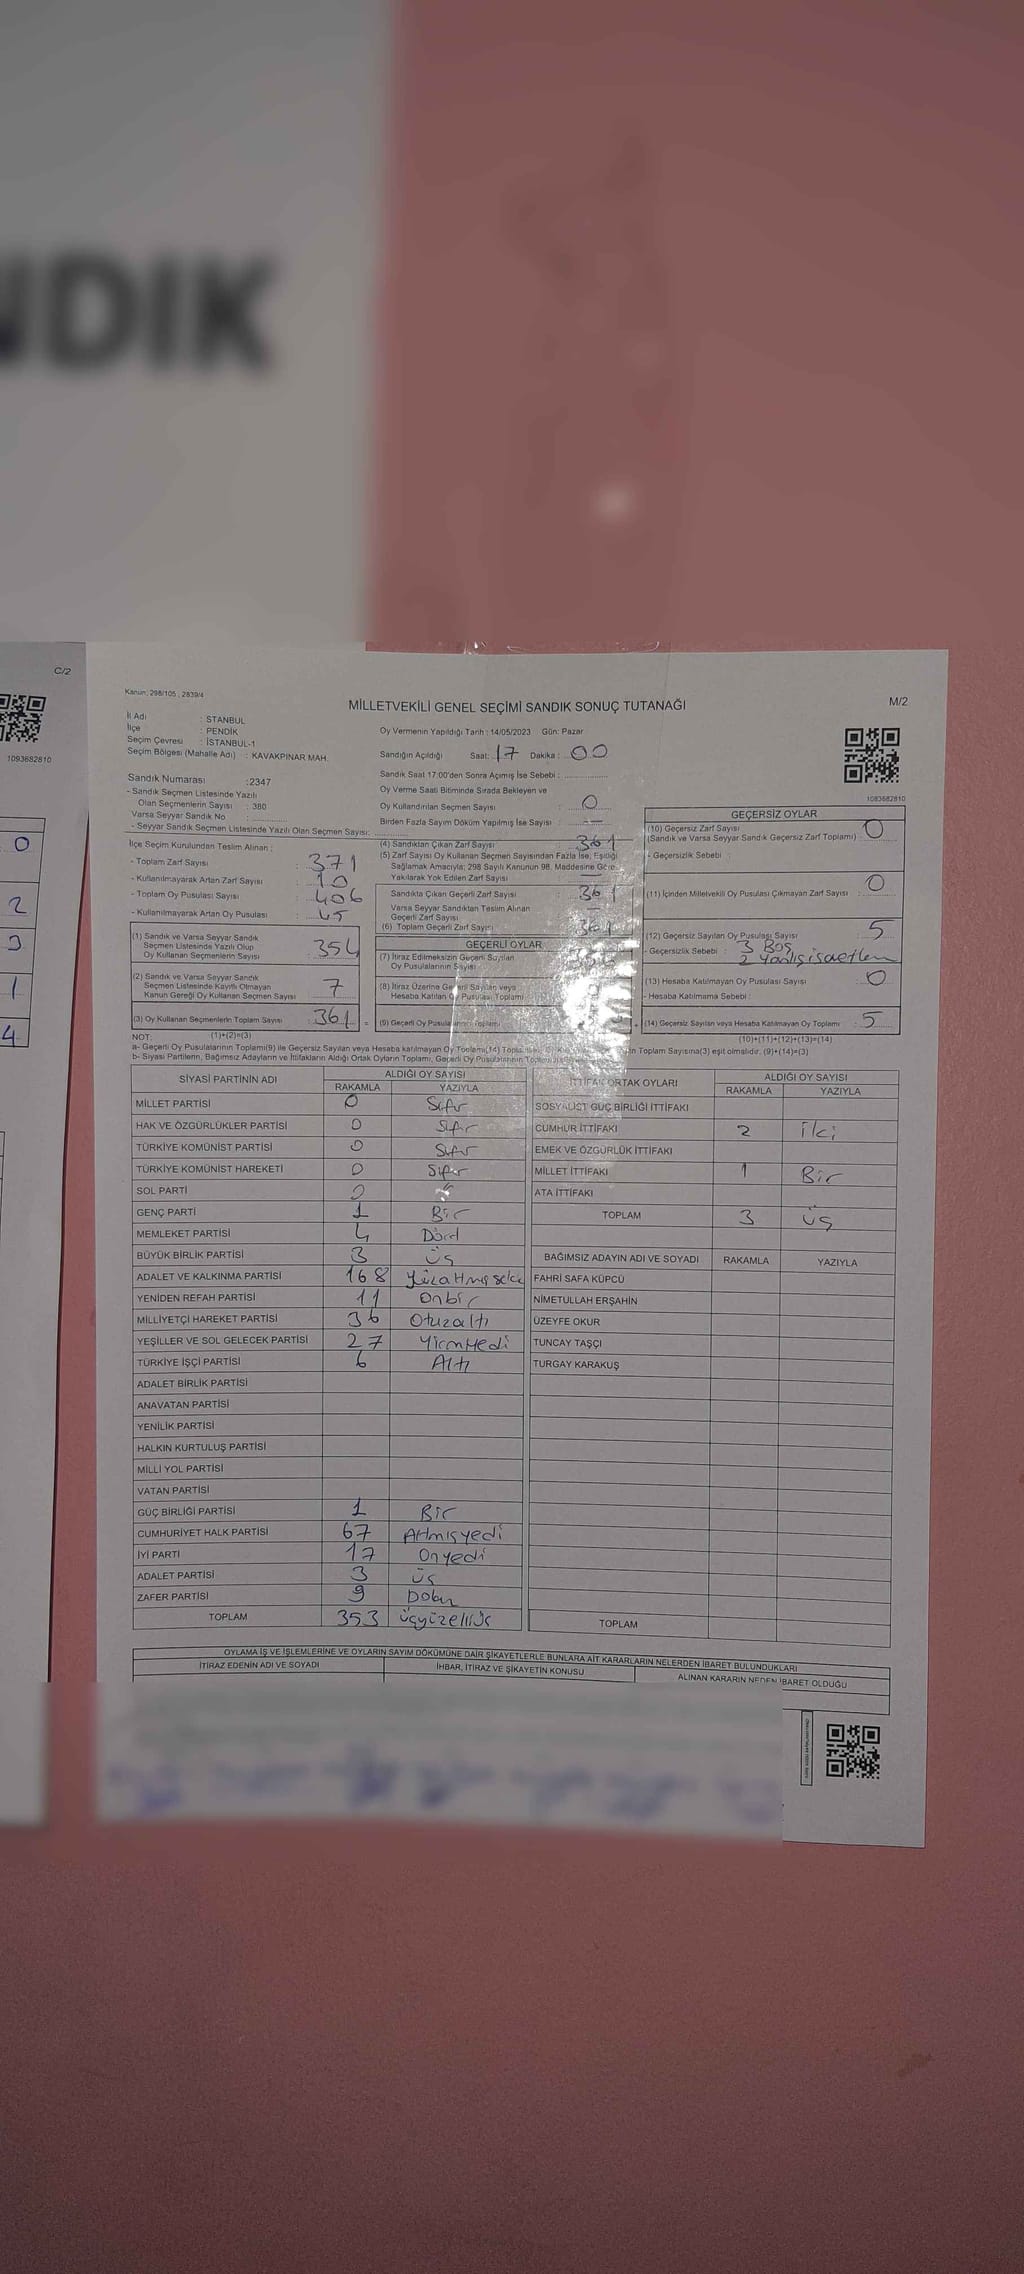 NDIK
C/2
1093682810
0
2
3
1
4
Kanun: 298/105, 2839/4
MİLLETVEKİLİ GENEL SEÇİMİ SANDIK SONUÇ TUTANAĞI
M/2
İl Adı : STANBUL
İlçe : PENDİK
Seçim Çevresi : İSTANBUL-1
Seçim Bölgesi (Mahalle Adı) : KAVAKPINAR MAH.
Oy Vermenin Yapıldığı Tarih : 14/05/2023 Gün: Pazar
Sandığın Açıldığı Saat: 17 Dakika : 00
Sandık Saat 17:00'den Sonra Açılmış İse Sebebi :
Oy Verme Saati Bitiminde Sırada Bekleyen ve
Oy Kullandırılan Seçmen Sayısı : 0
Birden Fazla Sayım Döküm Yapılmış İse Sayısı : —
1093682810
Sandık Numarası :2347
- Sandık Seçmen Listesinde Yazılı
Olan Seçmenlerin Sayısı : 380
Varsa Seyyar Sandık No :
- Seyyar Sandık Seçmen Listesinde Yazılı Olan Seçmen Sayısı:
İlçe Seçim Kurulundan Teslim Alınan :
- Toplam Zarf Sayısı : 371
- Kullanılmayarak Artan Zarf Sayısı : 10
- Toplam Oy Pusulası Sayısı : 406
- Kullanılmayarak Artan Oy Pusulası : 45
(1) Sandık ve Varsa Seyyar Sandık
Seçmen Listesinde Yazılı Olup
Oy Kullanan Seçmenlerin Sayısı : 354
(2) Sandık ve Varsa Seyyar Sandık
Seçmen Listesinde Kayıtlı Olmayan
Kanun Gereği Oy Kullanan Seçmen Sayısı : 7
(3) Oy Kullanan Seçmenlerin Toplam Sayısı : 361
(4) Sandıktan Çıkan Zarf Sayısı : 361
(5) Zarf Sayısı Oy Kullanan Seçmen Sayısından Fazla İse, Eşitliği
Sağlamak Amacıyla; 298 Sayılı Kanunun 98. Maddesine Göre
Yakılarak Yok Edilen Zarf Sayısı : —
Sandıkta Çıkan Geçerli Zarf Sayısı : 361
Varsa Seyyar Sandıktan Teslim Alınan
Geçerli Zarf Sayısı : —
(6) Toplam Geçerli Zarf Sayısı : 361
GEÇERLİ OYLAR
(7) İtiraz Edilmeksizin Geçerli Sayılan
Oy Pusulalarının Sayısı
(8) İtiraz Üzerine Geçerli Sayılan veya
Hesaba Katılan Oy Pusulası Toplamı
(9) Geçerli Oy Pusulalarının Toplamı
GEÇERSİZ OYLAR
(10) Geçersiz Zarf Sayısı : 0
(Sandık ve Varsa Seyyar Sandık Geçersiz Zarf Toplamı)
- Geçersizlik Sebebi :
(11) İçinden Milletvekili Oy Pusulası Çıkmayan Zarf Sayısı : 0
(12) Geçersiz Sayılan Oy Pusulası Sayısı : 5
- Geçersizlik Sebebi : 3 Boş
2 Yanlış işaretlen
(13) Hesaba Katılmayan Oy Pusulası Sayısı : 0
- Hesaba Katılmama Sebebi :
(14) Geçersiz Sayılan veya Hesaba Katılmayan Oy Toplamı : 5
NOT: (1)+(2)=(3)
(10)+(11)+(12)+(13)=(14)
a- Geçerli Oy Pusulalarının Toplamı(9) ile Geçersiz Sayılan veya Hesaba Katılmayan Oy Toplamı(14) Toplamı, Toplam Sayısına(3) eşit olmalıdır. (9)+(14)=(3)
b- Siyasi Partilerin, Bağımsız Adayların ve İttifakların Aldığı Ortak Oyların Toplamı, Geçerli Oy Pusulalarının
SİYASİ PARTİNİN ADI ALDIĞI OY SAYISI
RAKAMLA YAZIYLA
MİLLET PARTİSİ 0 Sıfır
HAK VE ÖZGÜRLÜKLER PARTİSİ 0 Sıfır
TÜRKİYE KOMÜNİST PARTİSİ 0 Sıfır
TÜRKİYE KOMÜNİST HAREKETİ 0 Sıfır
SOL PARTİ 0 "
GENÇ PARTİ 1 Bir
MEMLEKET PARTİSİ 4 Dört
BÜYÜK BİRLİK PARTİSİ 3 üç
ADALET VE KALKINMA PARTİSİ 168 yüzatmışsekiz
YENİDEN REFAH PARTİSİ 11 Onbir
MİLLİYETÇİ HAREKET PARTİSİ 36 Otuzaltı
YEŞİLLER VE SOL GELECEK PARTİSİ 27 Yirmiyedi
TÜRKİYE İŞÇİ PARTİSİ 6 Altı
ADALET BİRLİK PARTİSİ
ANAVATAN PARTİSİ
YENİLİK PARTİSİ
HALKIN KURTULUŞ PARTİSİ
MİLLİ YOL PARTİSİ
VATAN PARTİSİ
GÜÇ BİRLİĞİ PARTİSİ 1 Bir
CUMHURİYET HALK PARTİSİ 67 Atmışyedi
İYİ PARTİ 17 Onyedi
ADALET PARTİSİ 3 üç
ZAFER PARTİSİ 9 Dokuz
TOPLAM 353 üçyüzelliüç
İTTİFAK ORTAK OYLARI ALDIĞI OY SAYISI
RAKAMLA YAZIYLA
SOSYALİST GÜÇ BİRLİĞİ İTTİFAKI
CUMHUR İTTİFAKI 2 iki
EMEK VE ÖZGÜRLÜK İTTİFAKI
MİLLET İTTİFAKI 1 Bir
ATA İTTİFAKI
TOPLAM 3 üç
BAĞIMSIZ ADAYIN ADI VE SOYADI RAKAMLA YAZIYLA
FAHRİ SAFA KÜPCÜ
NİMETULLAH ERŞAHİN
ÜZEYFE OKUR
TUNCAY TAŞÇI
TURGAY KARAKUŞ
TOPLAM
OYLAMA İŞ VE İŞLEMLERİNE VE OYLARIN SAYIM DÖKÜMÜNE DAİR ŞİKAYETLERLE BUNLARA AİT KARARLARIN NELERDEN İBARET BULUNDUKLARI
İTİRAZ EDENİN ADI VE SOYADI İHBAR, İTİRAZ VE ŞİKAYETİN KONUSU ALINAN KARARIN NEDEN İBARET OLDUĞU